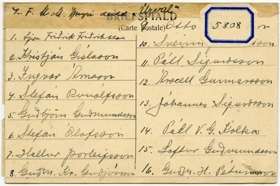 BRJEFSPJALD
(Carte Postale)
5808
1. Sjera Fridrik Fridriksson
2. Kristján Gíslason
3. Ingvar Árnason
4. Stefán Runólfsson
5. Guðbjörn Guðmundsson
6. Stefán Ólafsson
7. Hallur Þorleifsson
8. Guðm. Kr.
10.
11. Páll Sigurðsson
12. Gunnarsson
13. Jóhannes Sigurðsson
14. Páll V. G. Kolka
15. Loftur Guðmundsson
16. Guðm. H. Pétursson